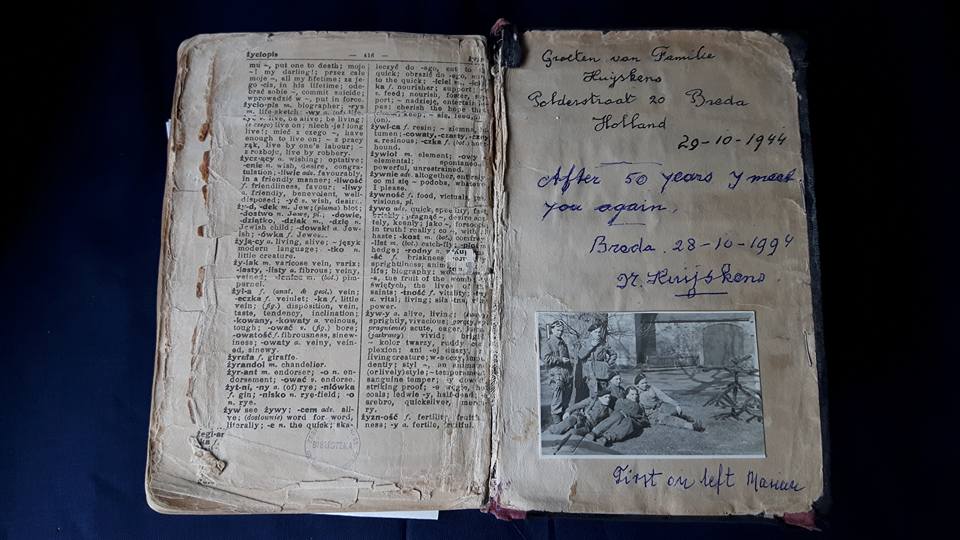 życiopis
— 416 —
mu –, put one to death; moje
– ! my darling!; przez całe
moje –, all my lifetime; za je-
go -cia, in his lifetime; ode-
brać sobie –, commit suicide;
wprowadzić w –, put in force.
życio-pis m. biographer; -rys
m. life-sketch;
życ v. live, be alive; be living!
live on; niech -je! long
live!; mieć z czego –, have
enough to live on; – z pracy
rąk, live by one's labour; –
z rozboju, live by robbery.
życzący a. wishing; optative;
-enie n. wish, desire, congra-
tulation; -liwie adv. favourably,
in a friendly manner; -liwość
f. friendliness, favour; -liwy
a. friendly, benevolent, well-
disposed; -yć v. wish, desire.
żyd, -dek m. Jew; (plama) blot;
-dostwo n. Jews, pl.; -dowie,
-dziątko, -dziak m., -dzię n.
Jewish child; -dowski a. Jew-
ish; -ówka f. Jewess.
żyjący a. living, alive; – język
modern language; -tko n.
little creature.
żylak m. varicose vein, varix;
-lasty, -listy a. fibrous; veiny,
veined; m. (bot.) pim-
parnel.
żyła f. (anat. & geol.) vein;
-eczka f. veinlet; -ka f. little
vein; (fig.) disposition, vein,
taste, tendency, inclination;
-kowany, -kowaty a. veinous,
tough; -ować v. (fig.) bore;
-owatość f. fibrousness, sinew-
iness; -owaty a. veiny, vein-
ed, sinewy.
żyrafa f. giraffe.
żyrandol m. chandelier.
żyr-ant m. endorser; -o n. en-
dorsement; -ować v. endorse.
żyt-ni, -ny a. (of) rye; -niówka
f. gin; -nisko n. rye-field; -o
n. rye.
żyw see żywy; -cem adv. ali-
ve; (dosłownie) word for word,
literally; -e n. the quick; ska-
leczyć do -ego, cut to
quick; obrazić do -ego,
to the quick; -iciel m.,
ka f. nourisher; support;
v. feed; nourish, flower, sup-
port; – nadzieję, entertain
pes; cherish the hope th
keep –, sa, feed
(on).
żywica f. resin; – ziemna,
tumen; -cowaty, -czasty,
a. resinous; -czka f. (bot.) hore-
hound.
żywioł m. element; -owy
elemental; spontaneo
powerful, unrestrained.
żywnie adv. altogether, entirely
co mi się – podoba, whatev
I please.
żywność f. food, victuals, pro-
visions, pl.
żywo adv. quick, speedily, fast
briskly; pragnąć –, desire
tely, keenly; jako –, forsooth
in truth! really; co –, with
haste; -kost m. (bot.) comfrey
-list m. (bot.) catch-fly;
hedge; -rodny
-ść f. briskness
sprightliness;
life; biography;
-a, the fruit of the womb
świętych, the lives of
saints; -tność f. vitality;
a. vital; living;
power.
żyw-y a. alive, living;
sprightly, vivacious;
pragnienie) acute, eager,
(jaskrawy) vivid; brig
– kolor twarzy, ruddy co
plexion; ani -ej duszy,
living creature; w -e oczy, imp
dently; styl –, an anima
(or lively) style; – temperam
sanguine temper;
striking proof;
souls; ledwie -y, half-dead;
srebro, quicksilver, mer
ry.
żyzn-ość f. fertility, fruit
ness; -y a. fertile, fruitful.
BIBLIOTEKA
Groeten van Familie
Huijskens
Polderstraat 20 Breda
Holland
29-10-1944
After 50 years I meet
you again.
Breda. 28-10-1994
M. Huijskens
First on left Marian